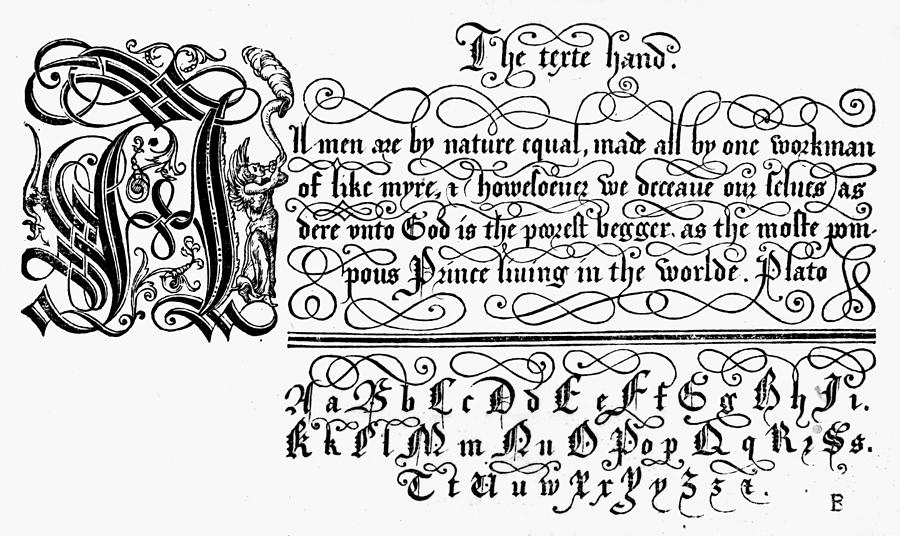 The texte hand.
All men are by nature equal, made all by one workman
of like myre, & howesoeuer we deceaue our selues as
dere vnto God is the poorest begger. as the moste pom-
pous Prince liuing in the worlde. Plato
A a B b C c D d E e F f G g H h I i.
K k L l M m N n O P o p Q q R r S s.
T t U u w X x Y y Z z &.
B